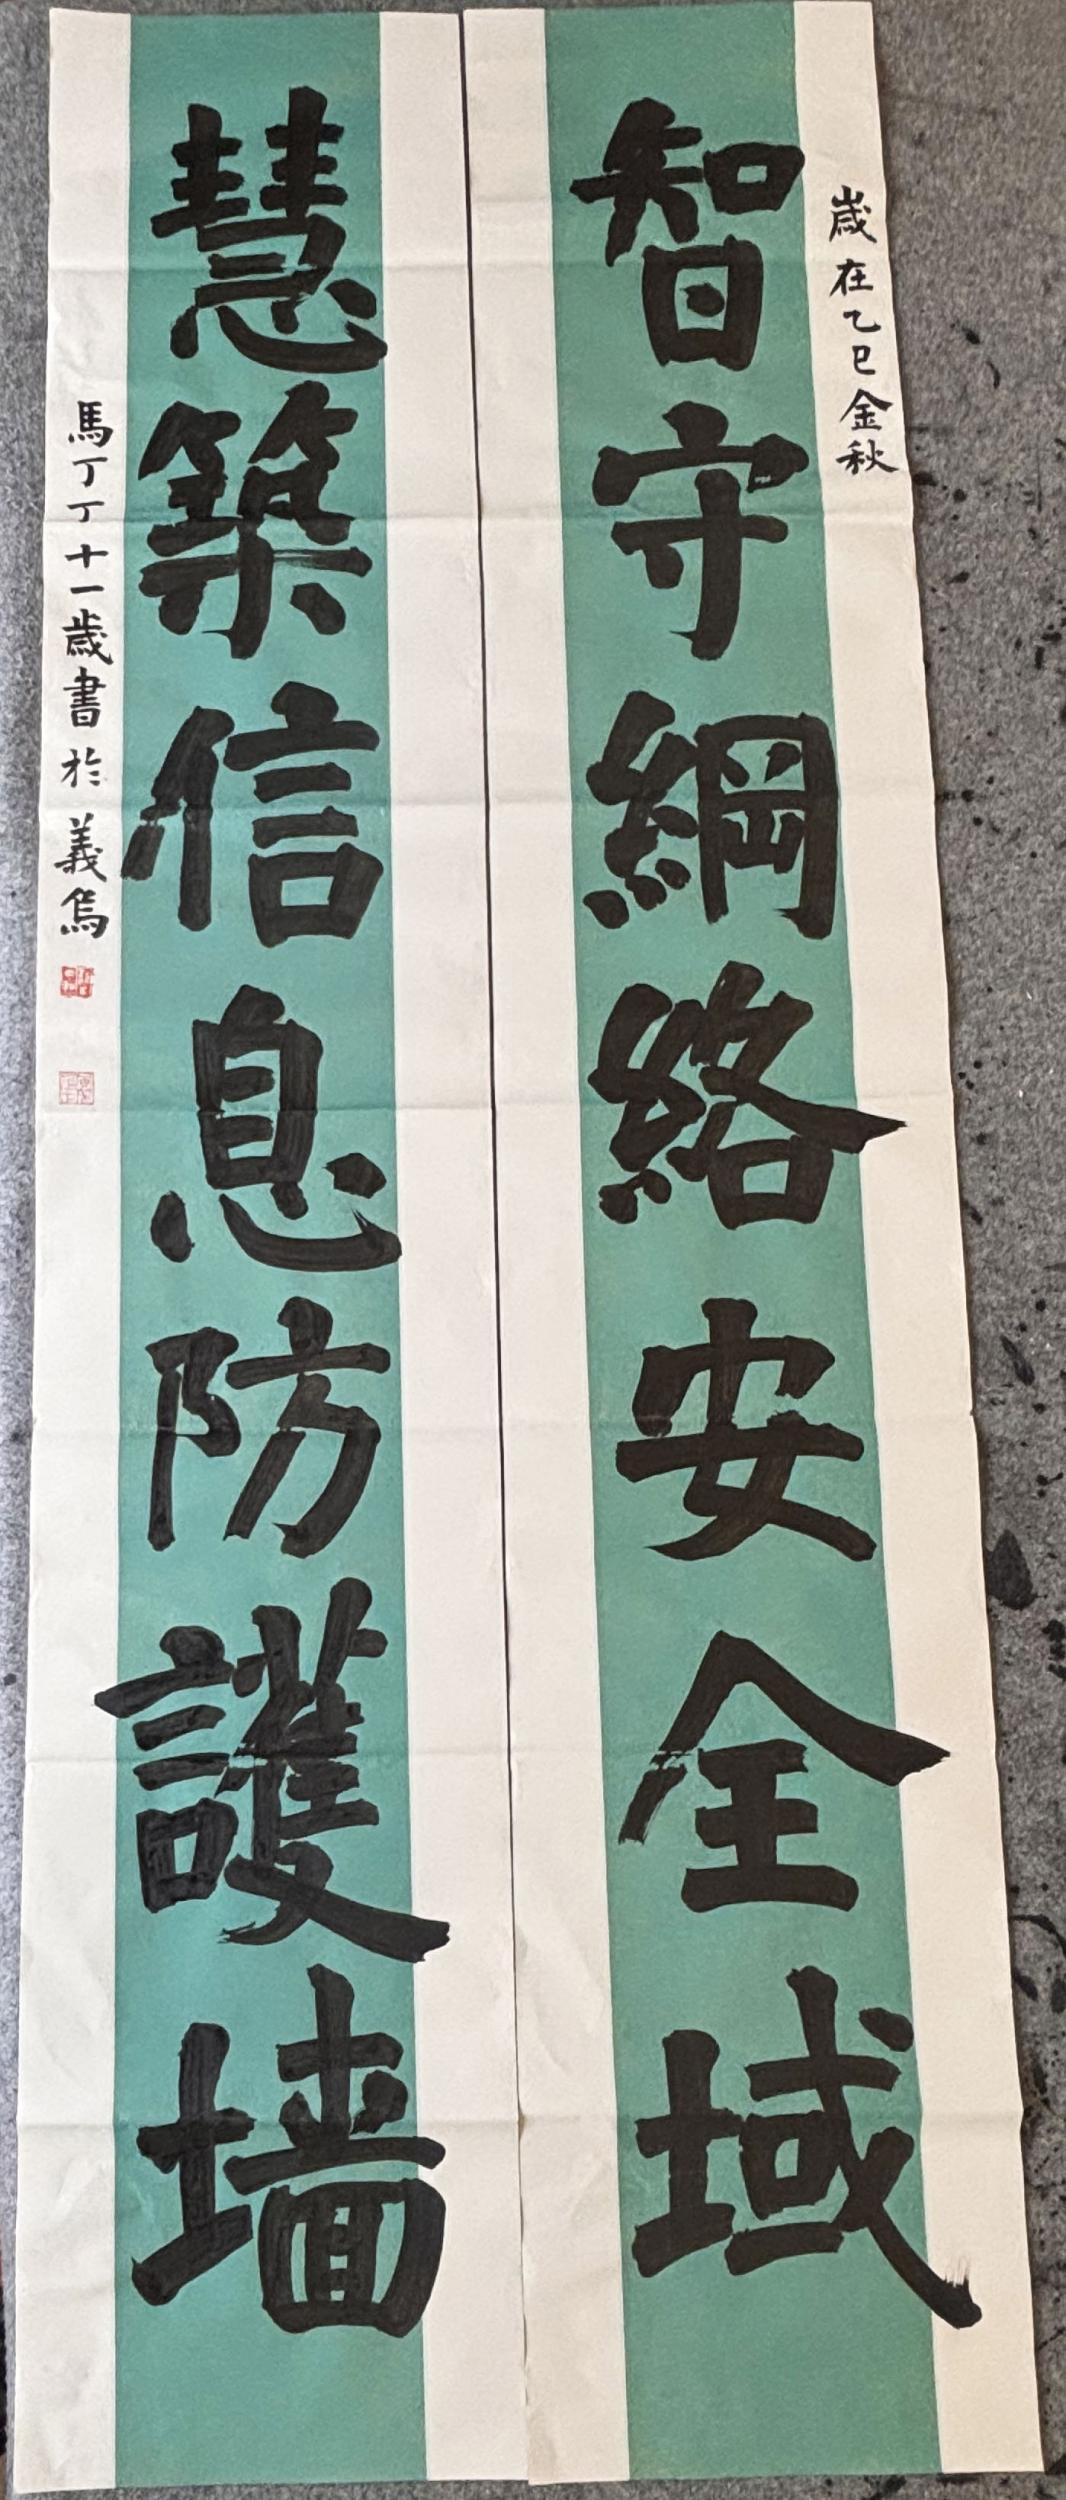 嵗在乙巳金秋
智守綱絡安全域
慧築信息防護墙
馬丁丁十一歲書於義烏